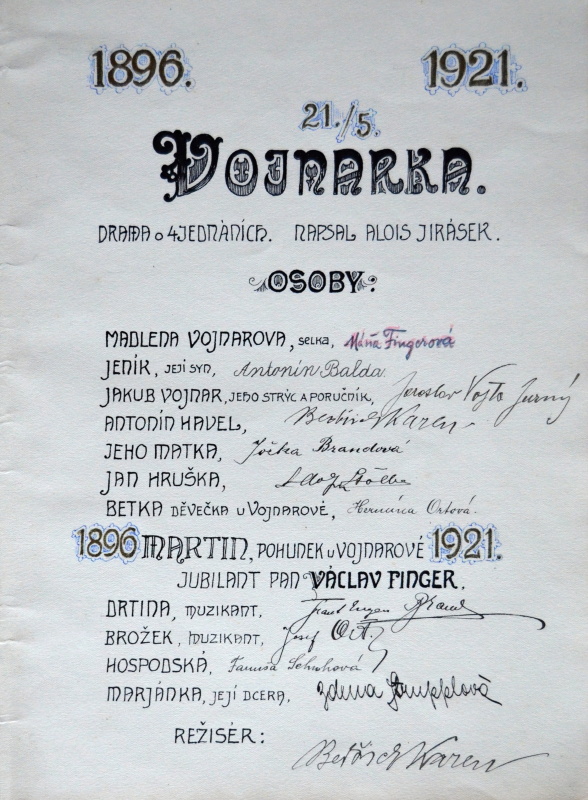 1896. 1921.
21./5.
VOJNARKA.
DRAMA O 4 JEDNÁNÍCH. NAPSAL ALOIS JIRÁSEK.
OSOBY:
MADLENA VOJNAROVA, SELKA, Máňa Fingerová
JENÍK, JEJÍ SYN, Antonín Balda.
JAKUB VOJNAR, JEHO STRÝC A PORUČNÍK, Jaroslav Vojta Jurný
ANTONÍN HAVEL, Bedřich Karen
JEHO MATKA, Brandová
JAN HRUŠKA,
BETKA DĚVEČKA U VOJNAROVÉ, Hermína Ortová.
1896 MARTIN, POHUNEK U VOJNAROVÉ 1921.
JUBILANT PAN VÁCLAV FINGER.
DRTINA, MUZIKANT,
BROŽEK, MUZIKANT, Josef Ort.
HOSPODSKÁ,
MARJÁNKA, JEJÍ DCERA, Zdena
REŽISÉR:
Bedřich Karen